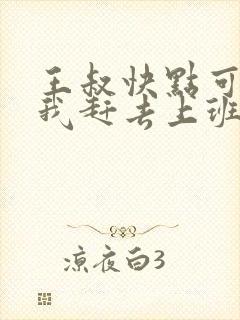 王叔快點可
我赶去上班
涼夜白3